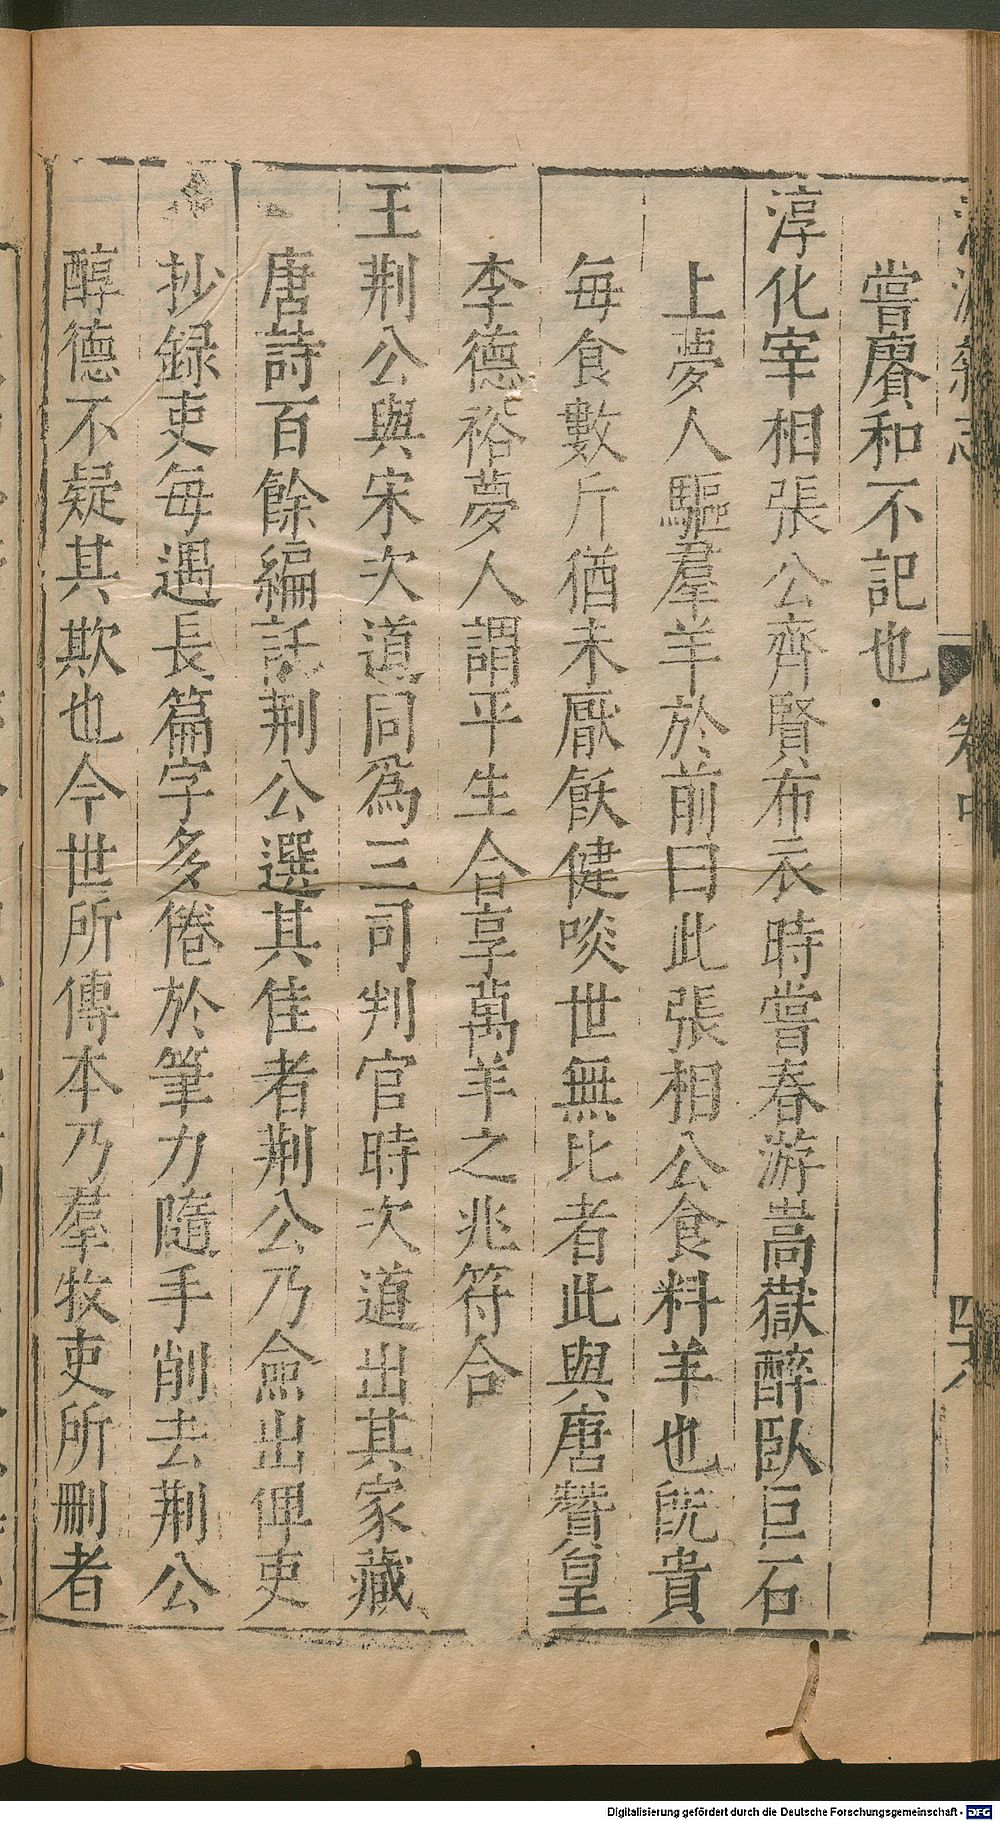 嘗賡和不記也
淳化宰相張公齊賢布衣時嘗春游嵩嶽醉臥巨石
上夢人驅羣羊於前曰此張相公食料羊也旣貴
每食數斤猶未厭飫健啖世無比者此與唐贊皇
李德裕夢人謂平生合享萬羊之兆符合
王荆公與宋次道同爲三司判官時次道出其家藏
唐詩百餘編託荆公選其佳者荆公乃僉出俾吏
抄録吏每遇長篇字多倦於筆力隨手削去荆公
醇德不疑其欺也今世所傳本乃羣牧吏所刪者
Digitalisierung gefördert durch die Deutsche Forschungsgemeinschaft - DFG